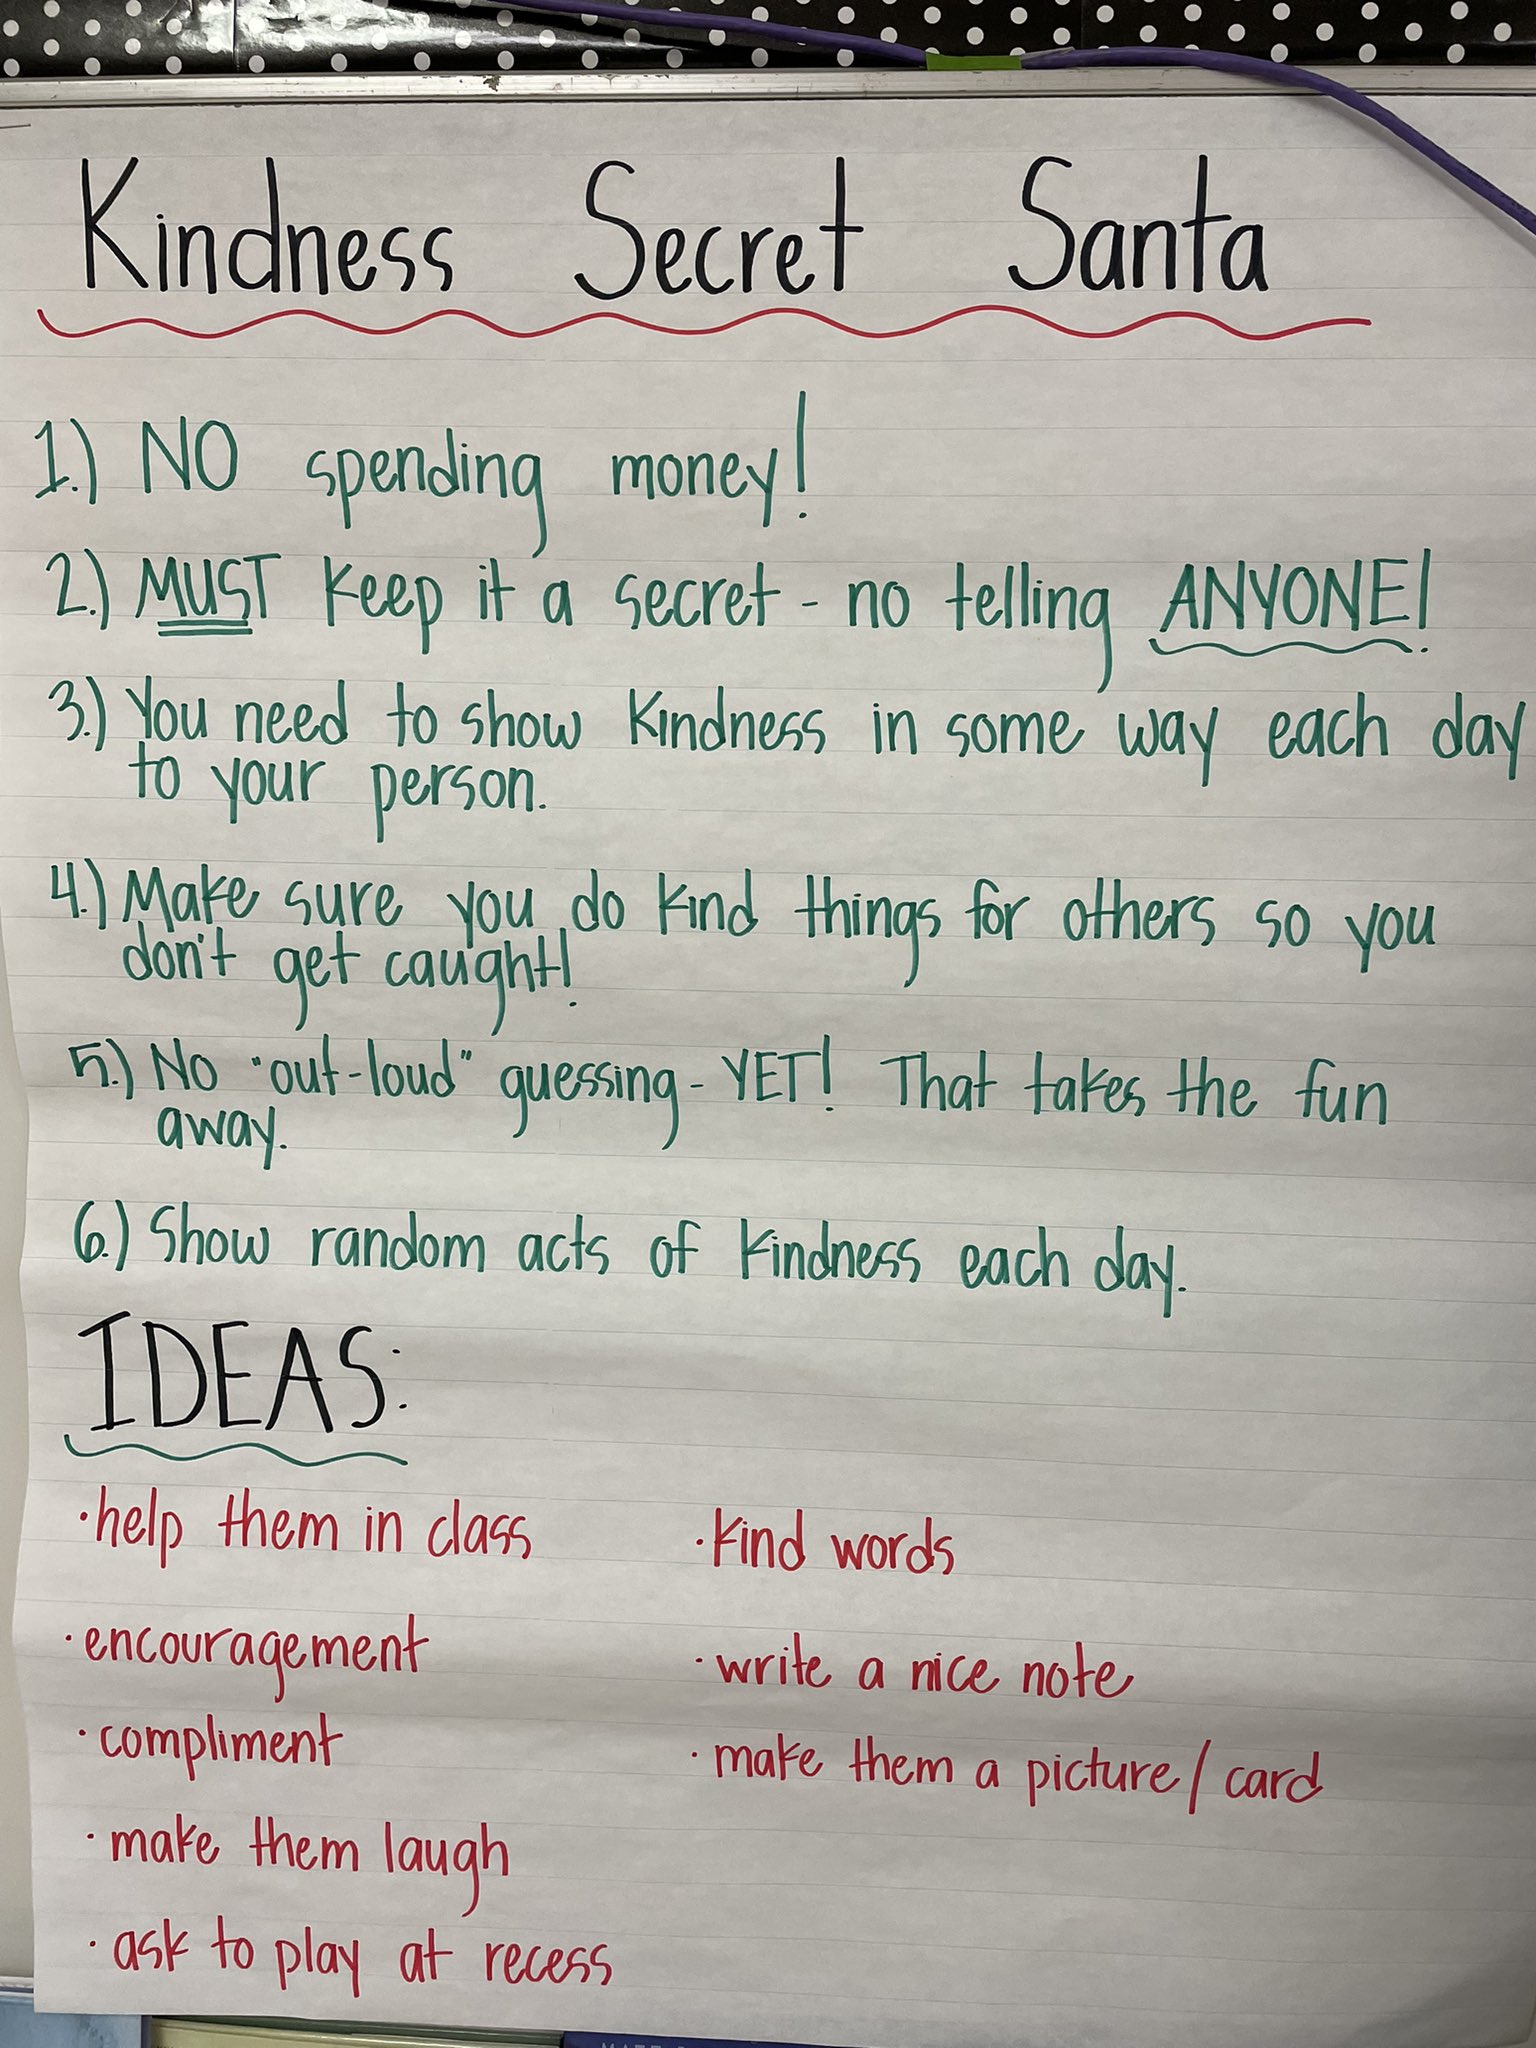 Kindness Secret Santa
1.) NO spending money!
2.) MUST keep it a secret - no telling ANYONE!
3.) You need to show kindness in some way each day
to your person.
4.) Make sure you do kind things for others so you
don't get caught!
5.) No "out-loud" guessing - YET! That takes the fun
away.
6.) Show random acts of kindness each day.
IDEAS:
·help them in class
·encouragement
·compliment
·make them laugh
·ask to play at recess
·kind words
·write a nice note
·make them a picture/card